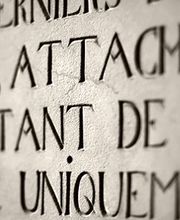 ERNIERS D
ATTACH
TANT DE
UNIQUEM